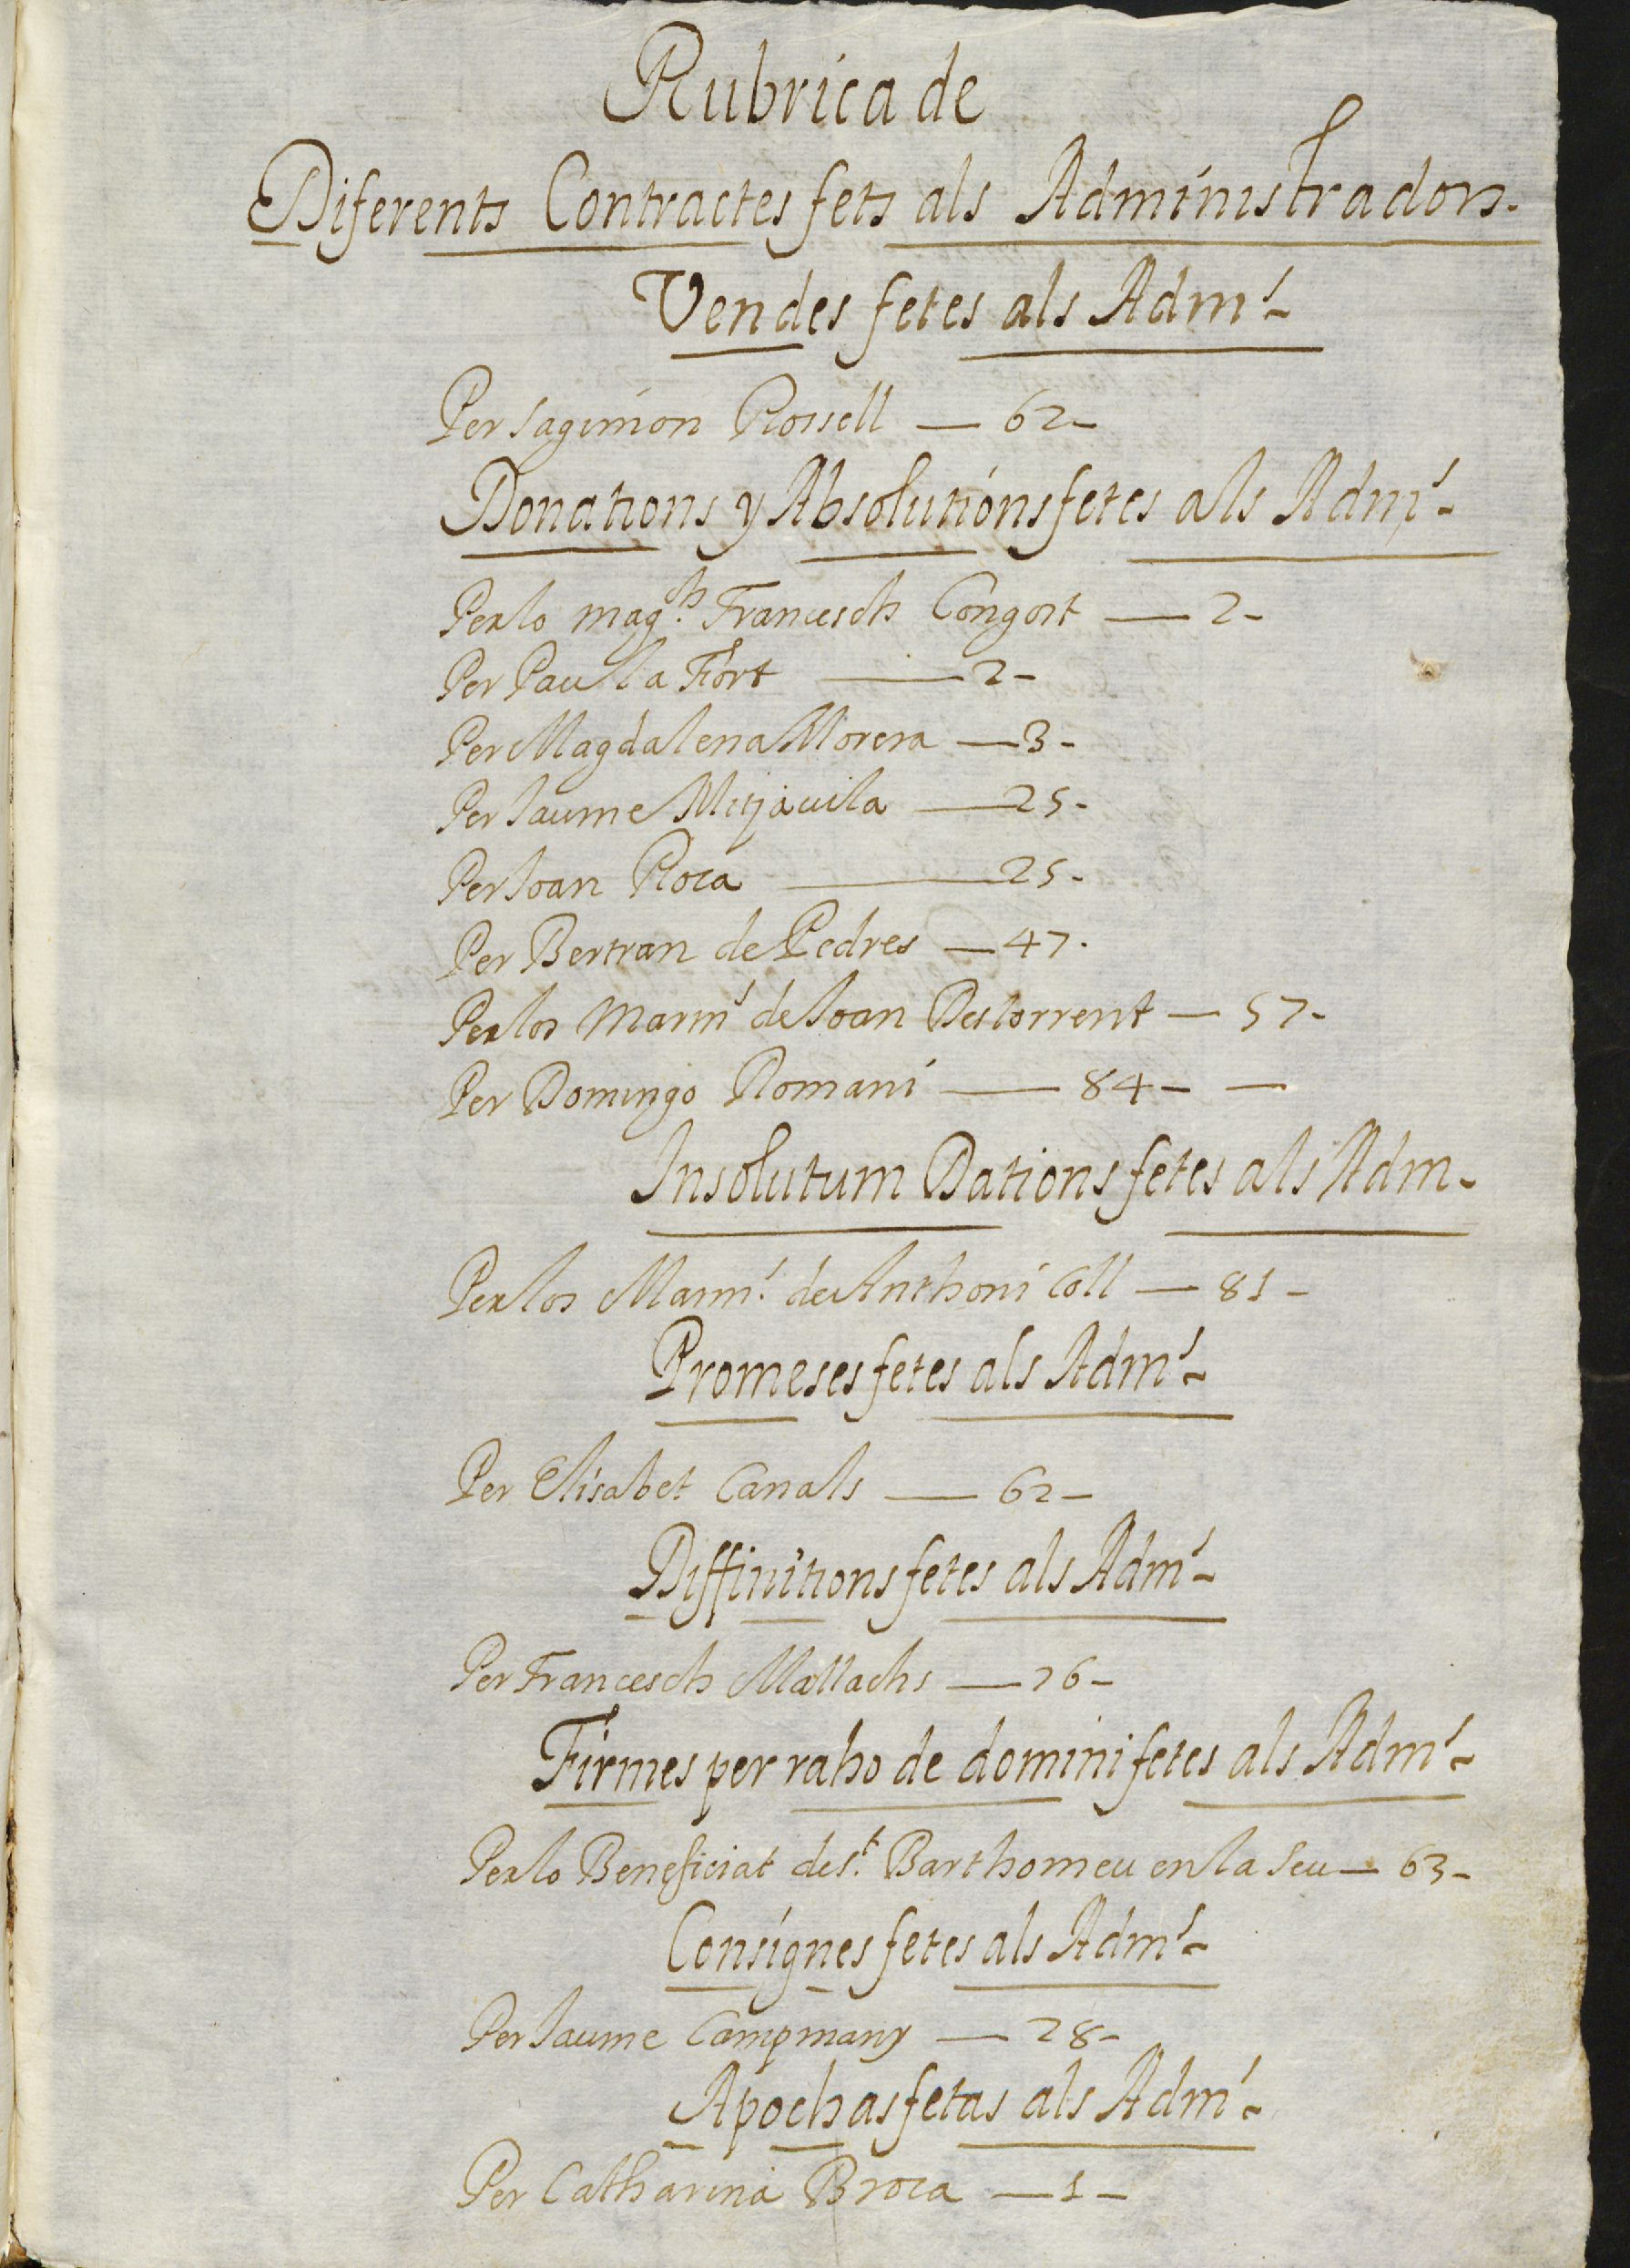 Rubrica de
Diferents Contractes fets als Administradors.
Vendes fetes als Adm.s
Per Sagimon Rossell — 62 -
Donations y Absolutions fetes als Adm.s
Per lo mag.ch Francesch Congost — 2 -
Per Paula Fort — 2 -
Per Magdalena Morera — 3 -
Per Jaume Mitjavila — 25 -
Per Joan Roca — 25 -
Per Bertran de Pedres — 47.
Per los Marm.s de Joan Destorrent — 57 -
Per Domingo Romani — 84 - —
Insolutum Dations fetes als Adm -
Per los Marm.s de Anthoni Coll — 81 -
Promeses fetes als Adm.s
Per Elisabet Canals — 62 -
Diffinitions fetes als Adm.s
Per Francesch Matllachs — 76 -
Firmes per raho de domini fetes als Adm.s
Per lo Beneficiat de S.t Barthomeu en la Seu — 63 -
Consignes fetes als Adm.s
Per Jaume Campmany — 28 -
Apochas fetas als Adm.s
Per Catharina Broca — 1 -